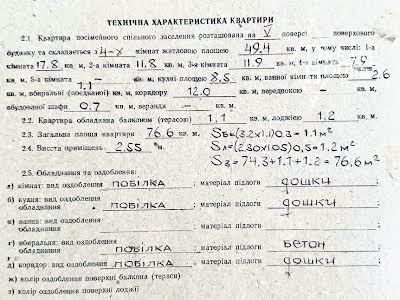 ТЕХНІЧНА ХАРАКТЕРИСТИКА КВАРТИРИ
2.1. Квартира посімейного спільного заселення розташована на V поверсі поверхового
будинку та складається з 4-х кімнат житловою площею 49.4 кв. м, у тому числі: 1-а
кімната 17.8 кв. м, 2-а кімната 11.8 кв. м, 3-я кімната 11.9 кв. м, 4-а кімната 7.9
кв. м, 5-а кімната — кв. м, кухні площею 8.5 кв. м, ванної кімнати площею 2.6
кв. м, вбиральні (поєднаної) 1.1 кв. м, коридору 12.0 кв. м, передпокою — кв. м,
вбудованої шафи 0.7 кв. м, веранди — кв. м.
2.2. Квартира обладнана балконом (терасою) 1.1 кв. м, лоджією 1.2 кв. м.
2.3. Загальна площа квартири 76.6 кв. м. Sб=(3.2х1.1)0.3=1.1м²
2.4. Висота приміщень 2.55 м. Sл=(2.30х1.05)0.5=1.2м²
S3=74.3+1.1+1.2=76.6м²
2.5. Обладнання та оздоблення:
а) кімнат: вид оздоблення ПОБІЛКА ; матеріал підлоги ДОШКИ ;
б) кухня: вид оздоблення
обладнання ПОБІЛКА ; матеріал підлоги ДОШКИ ;
в) ванна: вид оздоблення
обладнання ; матеріал підлоги ;
г) вбиральня: вид оздоблення
обладнання ПОБІЛКА ; матеріал підлоги БЕТОН ;
д) коридор: вид оздоблення ПОБІЛКА ; матеріал підлоги ДОШКИ ;
ж) колір оздоблення поверхні балкона (тераси)
з) колір оздоблення поверхні лоджії